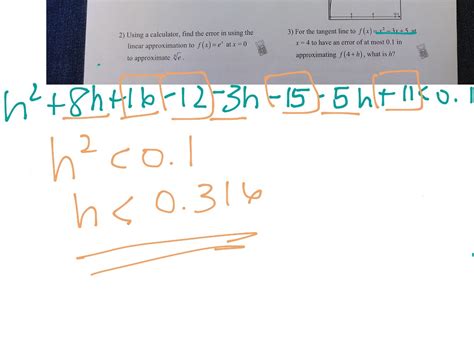 2) Using a calculator, find the error in using the
linear approximation to f(x) = eˣ at x = 0
to approximate
3) For the tangent line to f(x) = x² - 3x + 5 at
x = 4 to have an error of at most 0.1 in
approximating f(4 + h), what is h?
h² + 8h + 16 - 12 - 3h - 15 - 5h + 11 < 0.1
h² < 0.1
h < 0.316